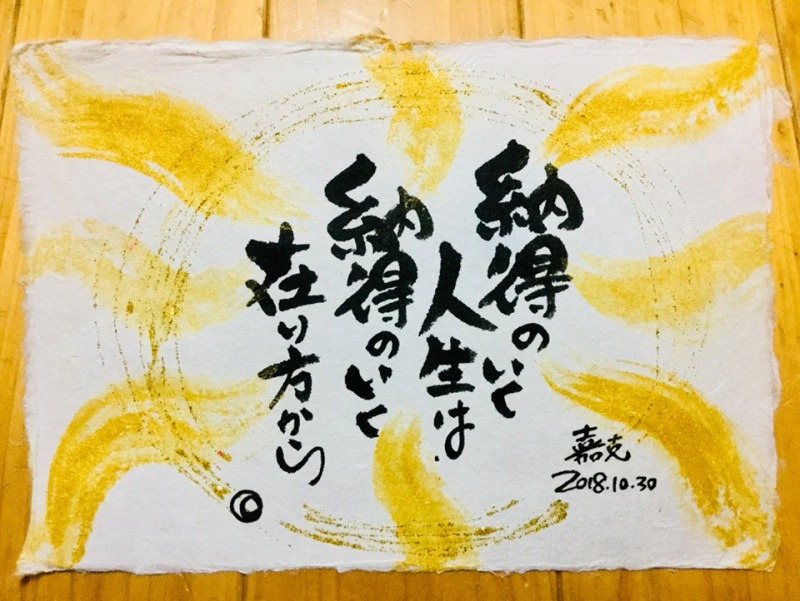 納得のいく
人生は
納得のいく
在り方から
嘉克
2018.10.30